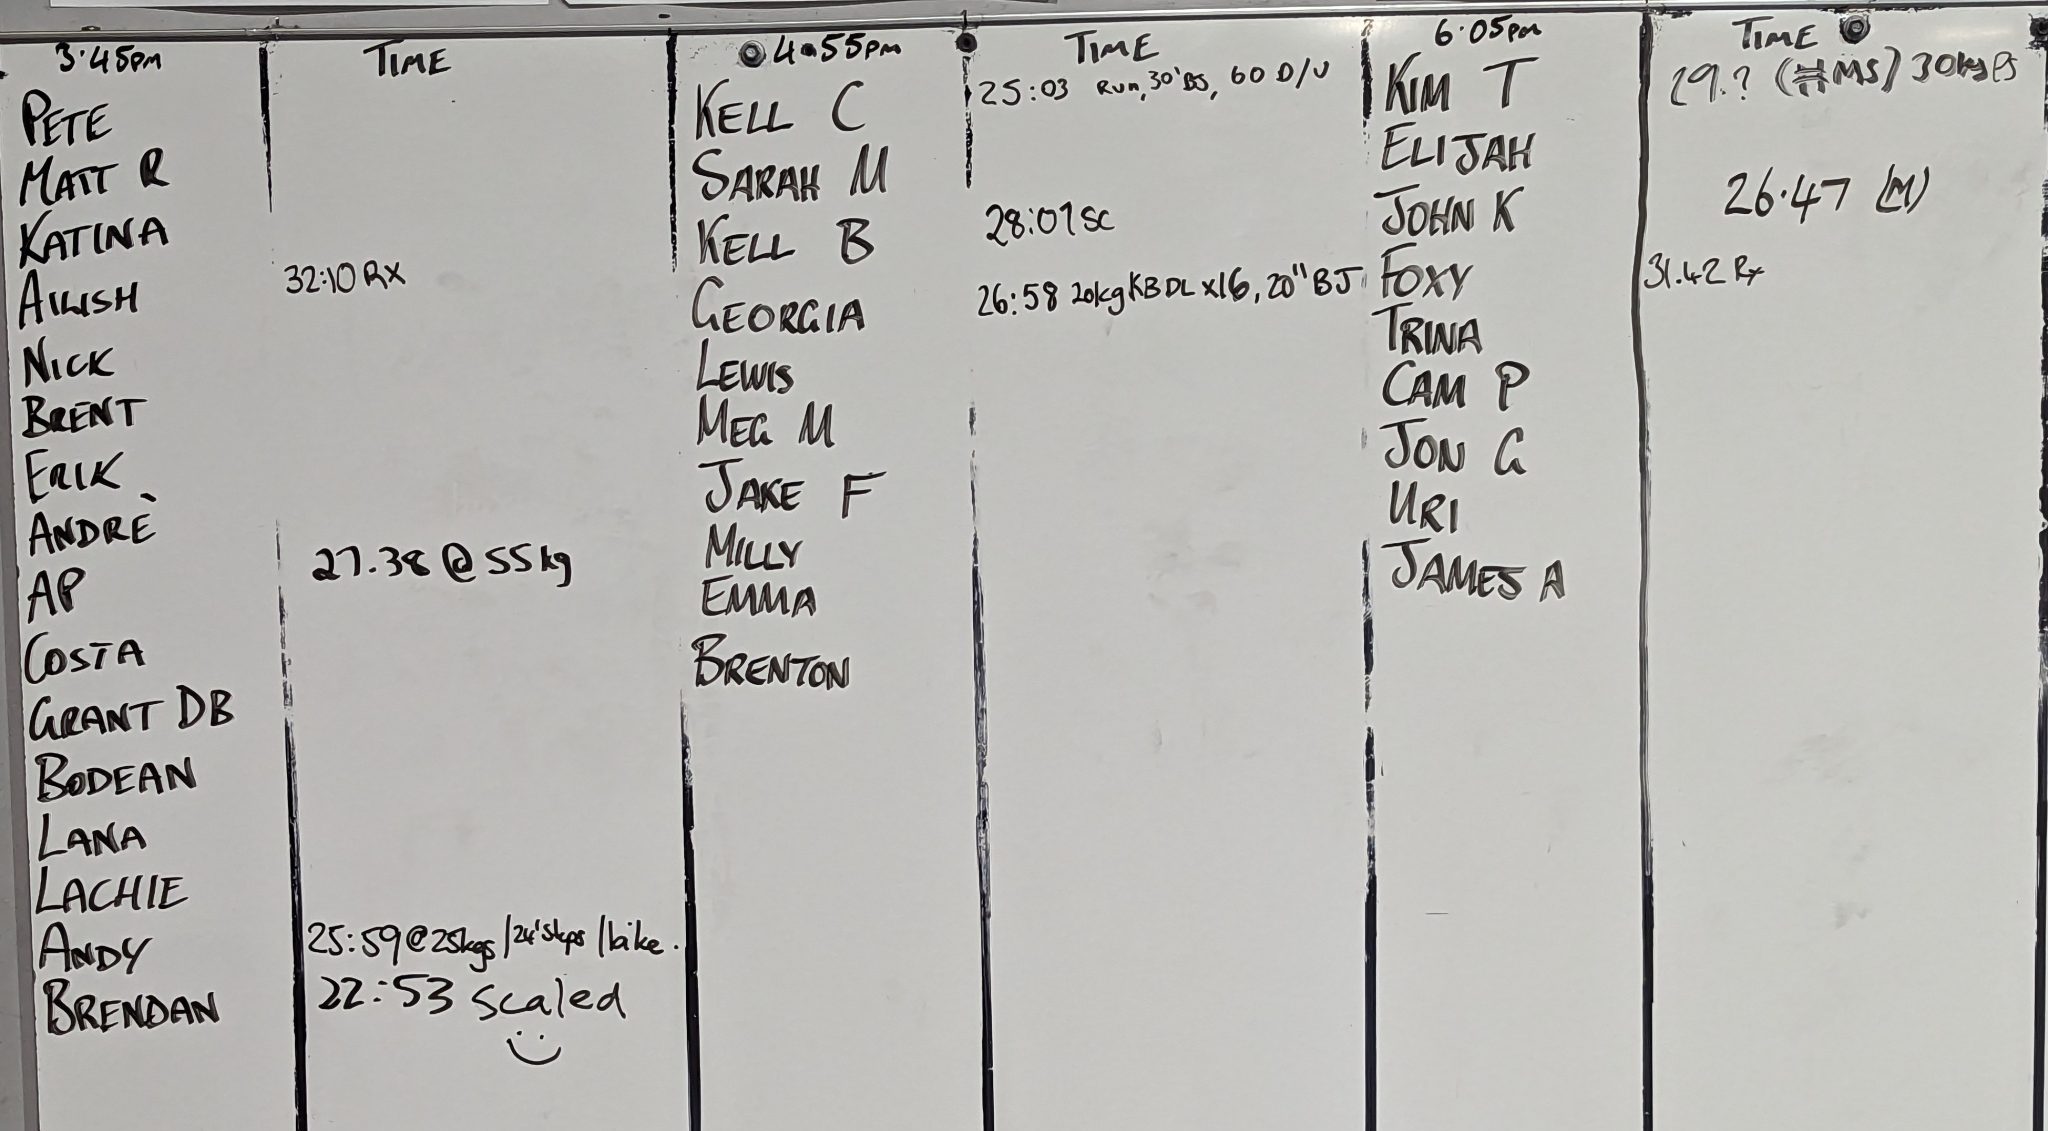 3·45pm TIME
PETE
MATT R
KATINA
AILISH 32:10 RX
NICK
BRENT
ERIK
ANDRÈ
AP 27.38 @ 55kg
COSTA
GRANT DB
BODEAN
LANA
LACHIE
ANDY 25:59 @ 25kgs / 24" /bike.
BRENDAN 22:53 scaled
4·55pm TIME
KELL C 25:03 Run, 30' BJS, 60 D/U
SARAH M
KELL B 28:07 SC
GEORGIA 26:58 20kg KB DL x16, 20" BJ
LEWIS
MEG M
JAKE F
MILLY
EMMA
BRENTON
6·05pm TIME
KIM T 29.? (MS) 30kg
ELIJAH
JOHN K 26·47 (M)
FOXY 31.42 Rx
TRINA
CAM P
JON G
URI
JAMES A